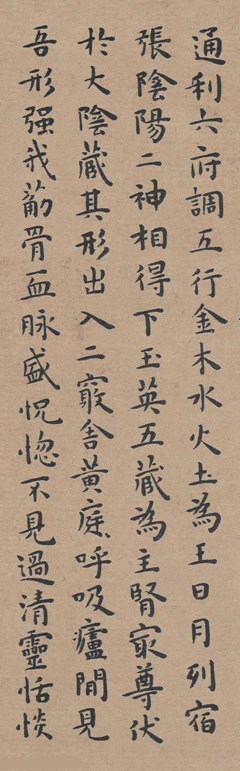 通利六府調五行金木水火土為王日月列宿
張陰陽二神相得下玉英五藏為主腎㝡尊伏
於大陰藏其形出入二竅舍黄庭呼吸廬間見
吾形强我筋骨血脉盛怳惚不見過清靈恬惔